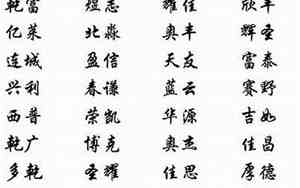 乾富 煜志 耀佳 欣丰
亿莱 北淼 奥丰 辉圣
连城 盈信 天友 富泰
兴利 春谦 蓝云 赛野
西普 荣凯 华源 吉如
乾广 博克 奥杰 佳昌
多乾 圣耀 佳思 厚德